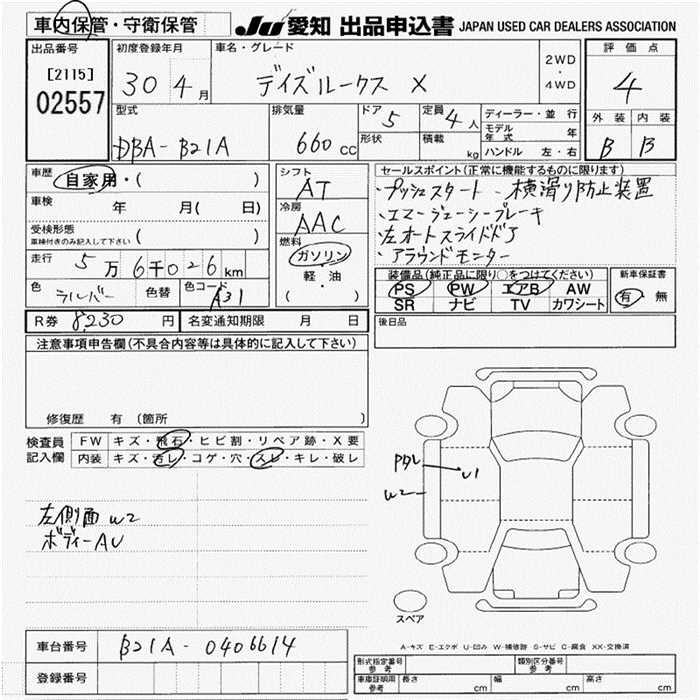 車内保管・守衛保管
JU 愛知 出品申込書 JAPAN USED CAR DEALERS ASSOCIATION
出品番号
[2115]
02557
初度登録年月
30 4月
車名・グレード
デイズルークス X
2WD
・
4WD
評価点
4
外装 内装
B B
型式
DBA-B21A
排気量
660 cc
ドア 5
形状
定員 4人
積載 kg
ディーラー・並行
モデル年式 年
ハンドル 左・右
車歴
自家用・( )
車検 年 月( 日)
受検形態
車検付きのみ記入して下さい ( )
走行 5万6千026km
色 シルバー
色替
色コード A31
シフト
AT
冷房
AAC
燃料
ガソリン
・
軽・油
( )
セールスポイント(正常に機能するものに限ります)
・プッシュスタート ・横滑り防止装置
・エマージェーシーブレーキ
・左オートスライドドア
・アラウンドモニター
装備品(純正品に限り○をつけてください)
PS PW エアB AW
SR ナビ TV カワシート
新車保証書
有・無
R券 8,230 円
名変通知期限 月 日
後日品
注意事項申告欄(不具合内容等は具体的に記入して下さい)
修復歴 有 (箇所 )
検査員
記入欄
FW キズ・飛石・ヒビ割・リペア跡・X要
内装 キズ・汚レ・コゲ・穴・スレ・キレ・破レ
左側面 W2
ボディーAU
U1
W2
スペア
A-キズ E-エクボ U-凹み W-補修跡 S-サビ C-腐食 XX-交換済
車台番号 B21A-0406614
登録番号
形式指定番号
参考
類別区分番号
参考
車庫証明用
参考
長さ cm 幅 cm 高さ cm